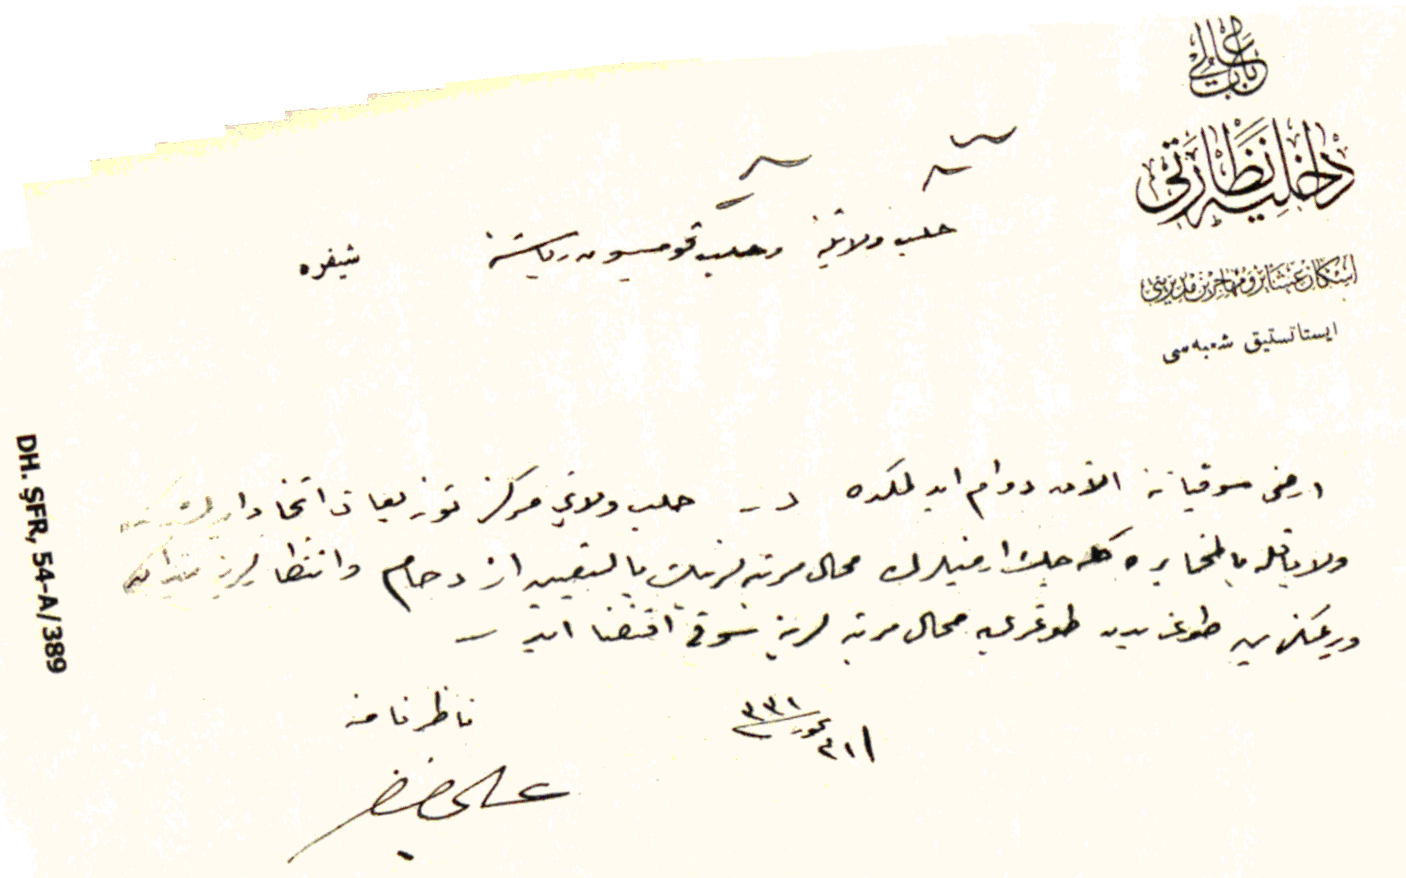 باب عالی
داخلیه نظارتی
اسكان عشایر و مهاجرین مدیریتی
ایستاتستیق شعبه سی
حلب ولایتنه وحلب قومسیون ریاستنه
شیفره
ارمنی سوقیاتنه الآن دوام ایدلمكده در حلب ولایتی مركز توزیعات اتخاذ
ولایاتله بالمخابره كله جك ارمنیلرك محال مرتبه لرینك بالتعیین ازدحام وانتظارلرینه
ویرمكسزین طوغریدن طوغری یه محال مرتبه لرینه سوقی اقتضا ایدر
ناظر نامنه
٣٣١
DH. ŞFR, 54-A/389